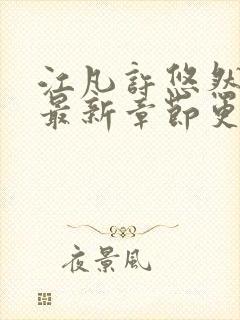 江凡許悠然
最新章節更
夜景風